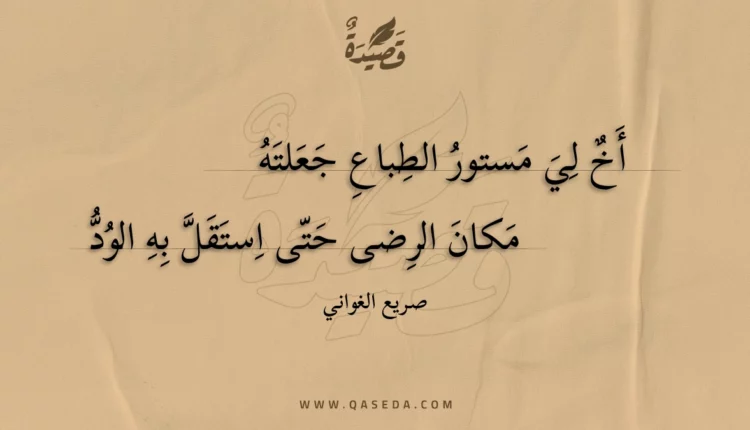 قَصِيْدَةٌ
أَخٌ لِيَ مَستورُ الطِباعِ جَعَلتَهُ
مَكانَ الرِضى حَتّى اِستَقَلَّ بِهِ الوُدُّ
صريع الغواني
WWW.QASEDA.COM